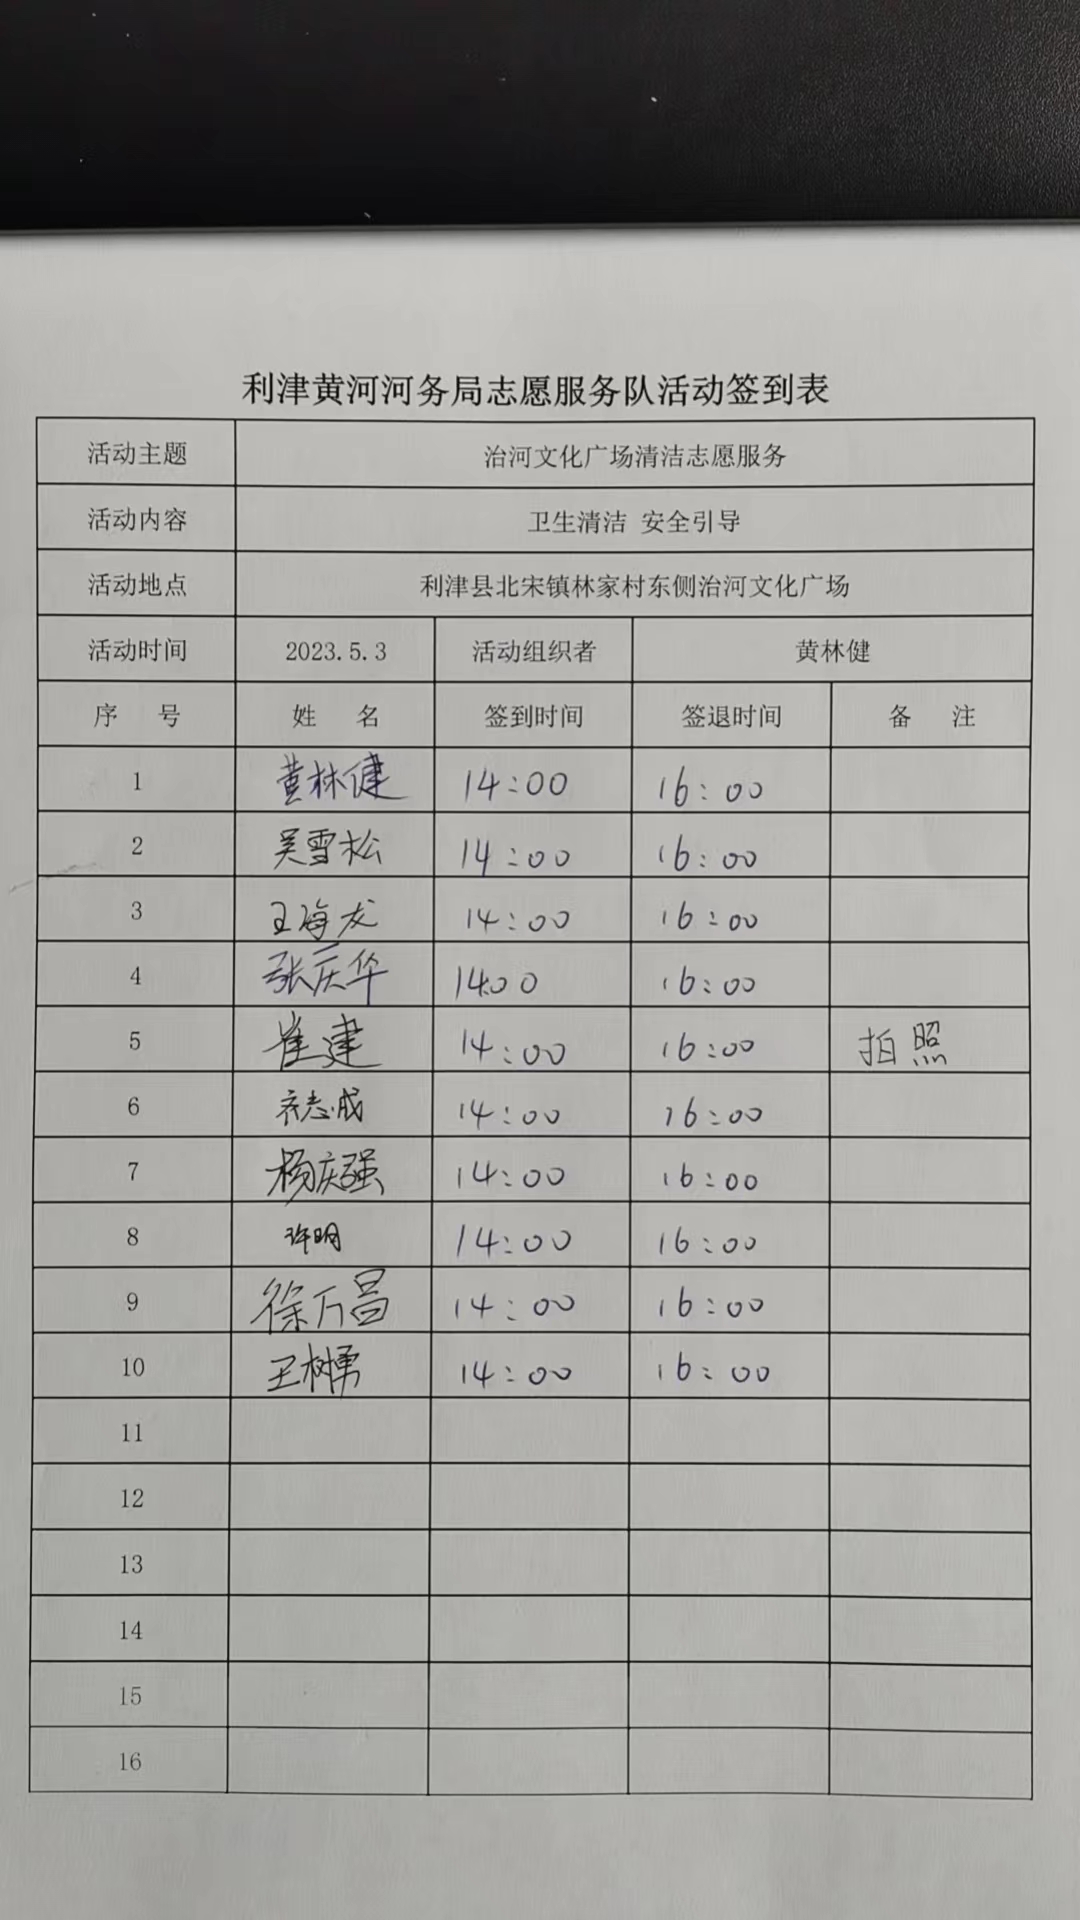 利津黄河河务局志愿服务队活动签到表
活动主题 治河文化广场清洁志愿服务
活动内容 卫生清洁 安全引导
活动地点 利津县北宋镇林家村东侧治河文化广场
活动时间 2023.5.3 活动组织者 黄林健
序 号 姓 名 签到时间 签退时间 备 注
1 黄林健 14:00 16:00
2 吴雪松 14:00 16:00
3 王海龙 14:00 16:00
4 张庆华 14:00 16:00
5 崔建 14:00 16:00 拍照
6 齐志成 14:00 16:00
7 杨庆强 14:00 16:00
8 许明 14:00 16:00
9 徐万昌 14:00 16:00
10 王树勇 14:00 16:00
11
12
13
14
15
16